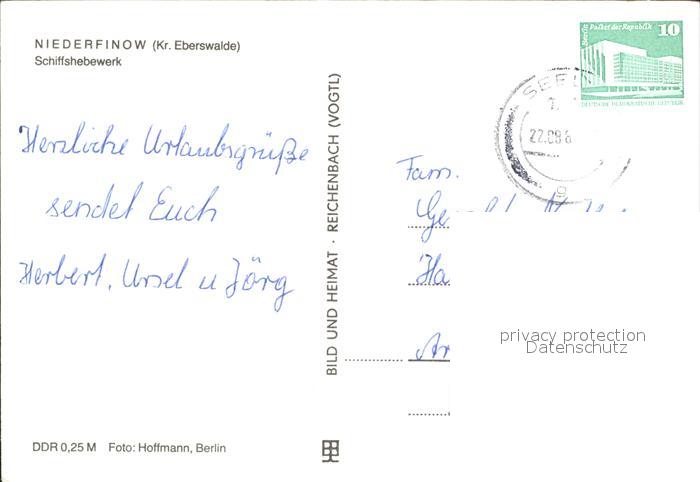 NIEDERFINOW (Kr. Eberswalde)
Schiffshebewerk
Herzliche Urlaubsgrüße
sendet Euch
Herbert, Ursel u Jörg
DDR 0,25 M Foto: Hoffmann, Berlin
BILD UND HEIMAT · REICHENBACH (VOGTL)
Berlin Palast der Republik 10
DEUTSCHE DEMOKRATISCHE REPUBLIK
22.08.8
Fam.
Ge
Ha
privacy protection
Datenschutz